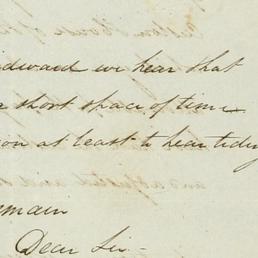 dward we hear that
short space of time
on at least to hear tiding
main
Dear Sir -